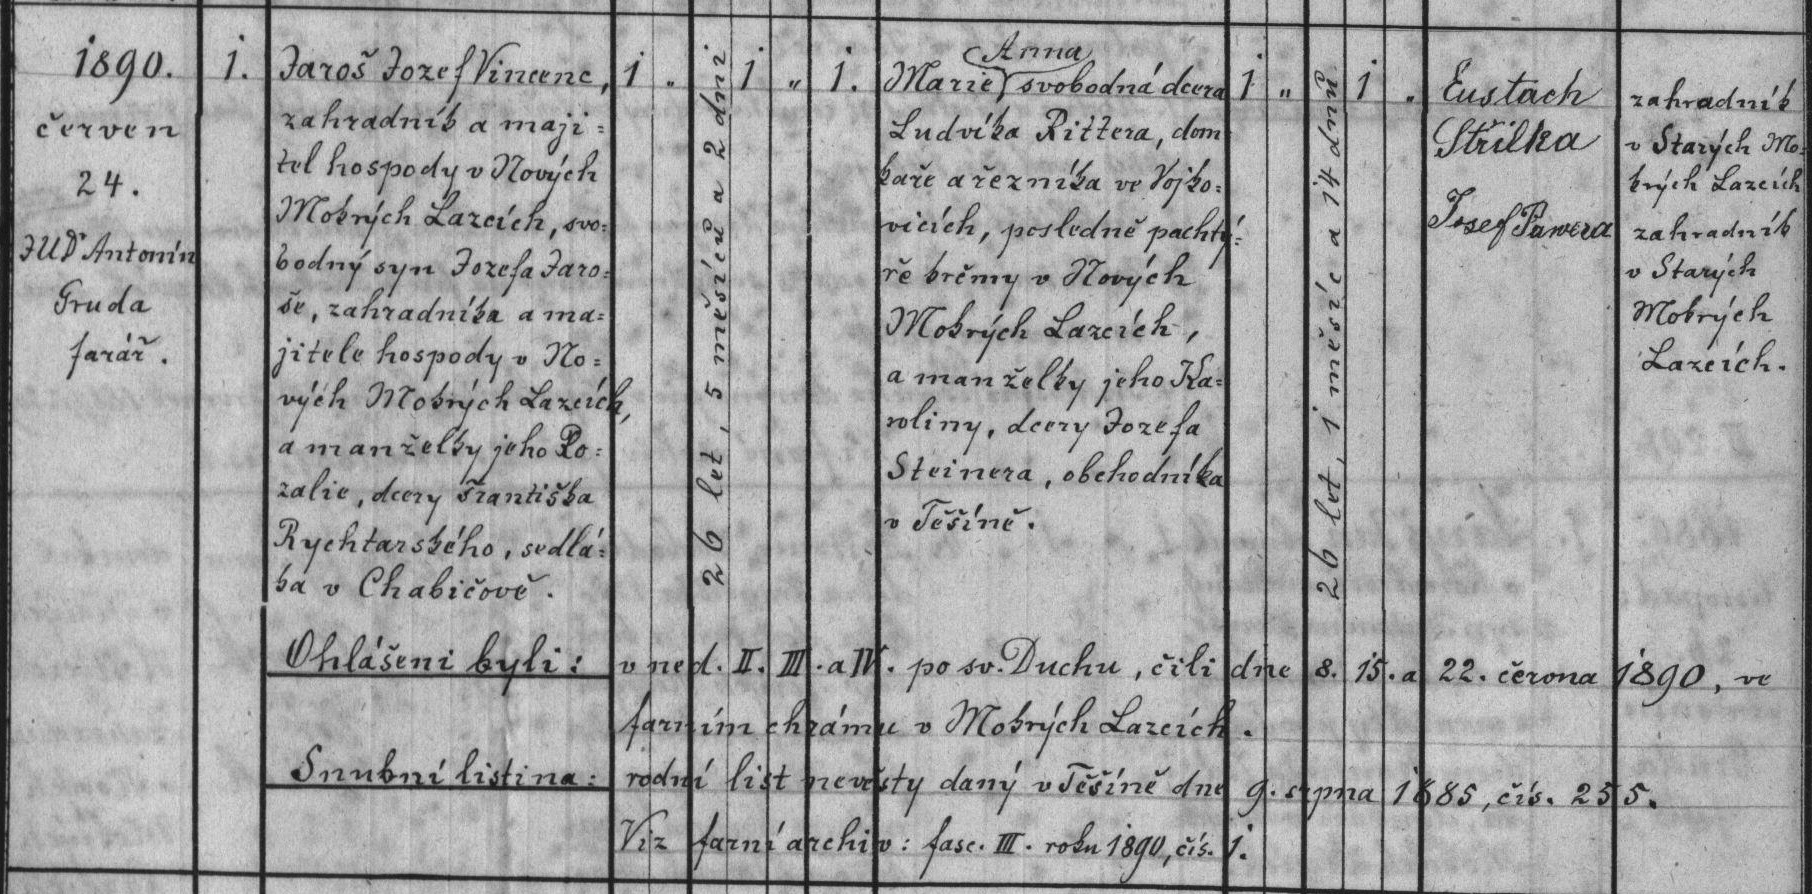 1890.
červen
24.
JUDr Antonín
Gruda
farář.
1.
Jaroš Jozef Vincenc,
zahradník a maji=
tel hospody v Nových
Mokrých Lazcích, svo=
bodný syn Jozefa Jaro=
še, zahradníka a ma=
jitele hospody v No=
vých Mokrých Lazcích,
a manželky jeho Ro=
zalie, dcery Františka
Rychtarského, sedlá=
ka v Chabičově.
1 „
26 let, 5 měsíců a 2 dni
1 „ 1.
Anna
Marie, svobodná dcera
Ludvíka Rittera, dom=
kaře a řezníka ve Vojko=
vicích, posledně pachtý=
ře krčmy v Nových
Mokrých Lazcích,
a manželky jeho Ka=
roliny, dcery Jozefa
Steinera, obchodníka
v Těšíně.
1 „
26 let, 1 měsíc a 14 dnů
1 „
Eustach
Střilka
Josef Pawera
zahradník
v Starých Mo=
krých Lazcích
zahradník
v Starých
Mokrých
Lazcích.
Ohlášeni byli: v ned. II. III. a IV. po sv. Duchu, čili dne 8. 15. a 22. června 1890, ve
farním chrámu v Mokrých Lazcích.
Snubní listina: rodní list nevěsty daný v Těšíně dne 9. srpna 1885, čís. 255.
Viz farní archiv: fasc. III. roku 1890, čís. 1.